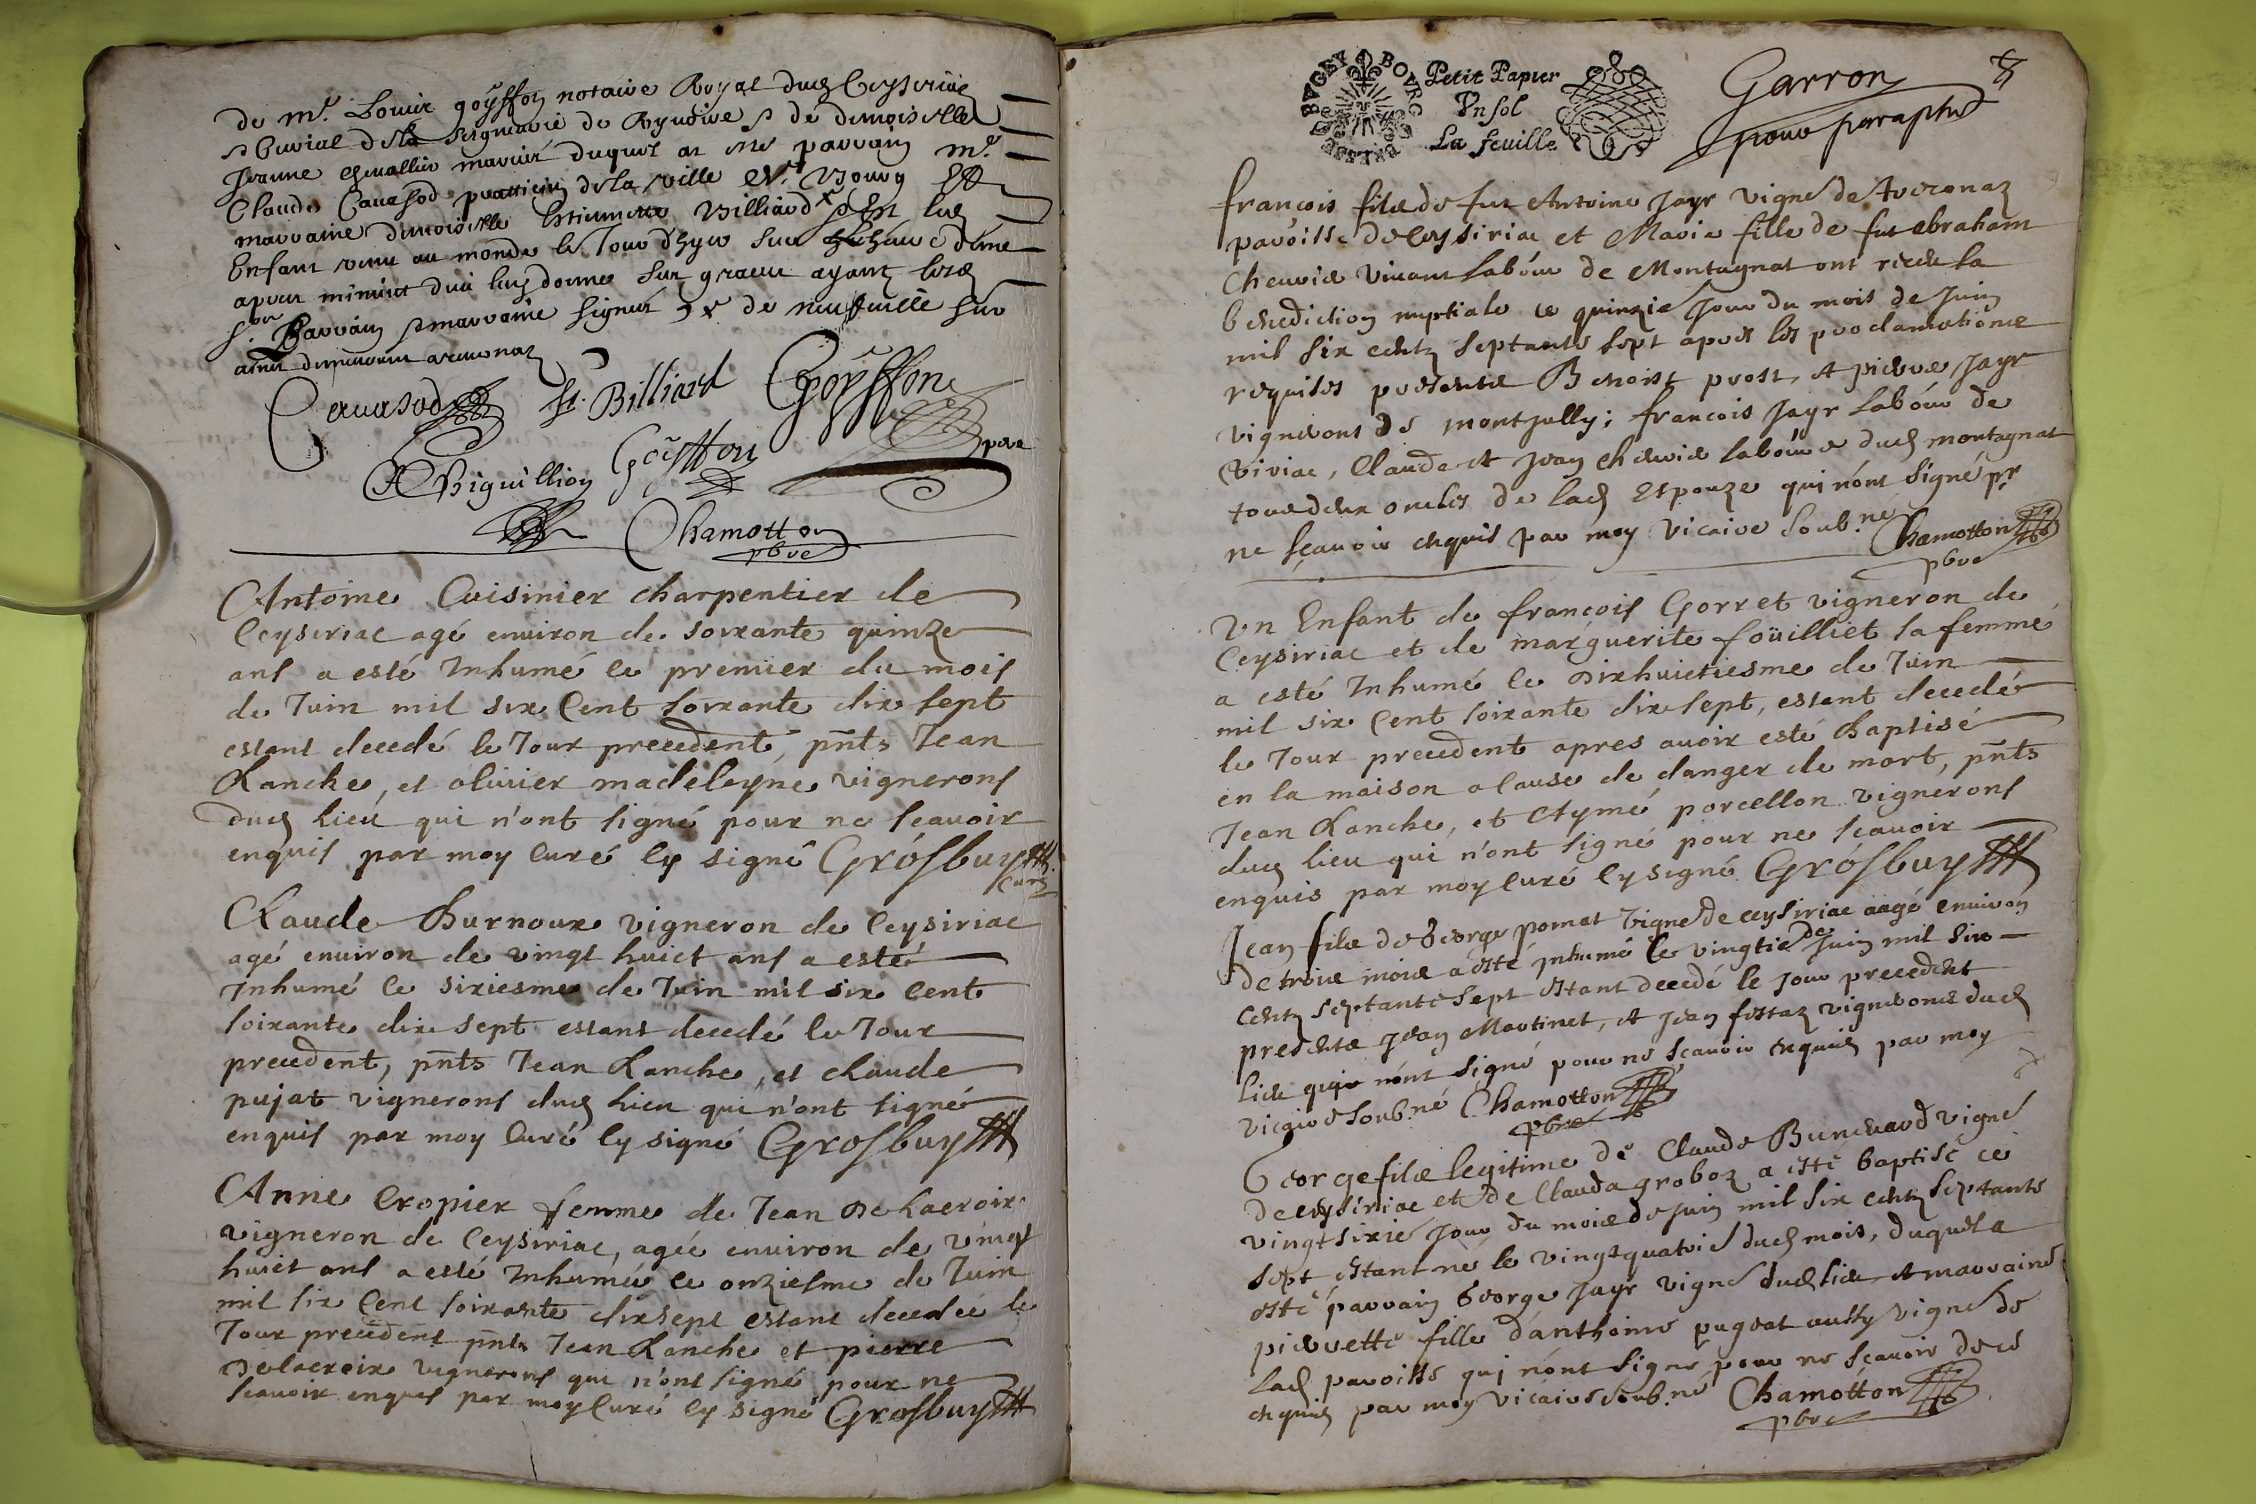 de mr. Louis goÿffon notaire Royal dud Ceyseria
Curial de la seigneurie de
Jeanne chevallier mariés duquel at esté parrain mr.
Claude Cavasod praticien de la ville de Bourg et
marraine demoiselle Estiennette Billiard
Enfant venu au monde le Jour d'hyer sur
apres minuict dieu luy donne sa grace ayant lesd
sr. Parrain et marraine signés
Cavasod St. Billiard Goÿffon
pere
Biguillion Goÿffon
Chamotton
pbre
Antoine Cuisinier charpentier de
Ceysiriac agé environ de soixante quinze
ans a esté Inhumé le premier du mois
de Juin mil six Cent soixante dix sept
estant decedé le Jour precedent, pnts Jean
Ranche, et olivier madeleyne vignerons
dud lieu qui n'ont signé pour ne scavoir
enquis par moy Curé Cy signé Grosbuy
Curé
Claude Burnoux vigneron de Ceysiriac
agé environ de vingt huict ans a esté
Inhumé le sixiesme de Juin mil six Cent
soixante dix sept estant decedé le Jour
precedent, pnts Jean Ranche, et Claude
pujat vignerons dud lieu qui n'ont signé
enquis par moy Curé Cy signé Grosbuy
Anne Cropier femme de Jean De Lacroix
vigneron de Ceysiriac, agée environ de vingt
huict ans a esté Inhumée le onziesme de Juin
mil six Cent soixante dix sept estant decedée le
Jour precedent pnts Jean Ranche et pierre
Delacroix vignerons qui n'ont signé pour ne
scavoir enquis par moy Curé Cy signé Grosbuy
BVGEY BOVRG
Petit Papier
Vn sol
La feuille
Garron
pour paraphe
françois fils de fut Antoine Jayr vigné de
paroisse de Ceysiriac et Marie fille de fut ebraham
Chevrie vivant labour de Montagnat ont receu la
benediction nuptiale le quinzie Jour du mois de Juin
mil six cents septante sept apres les proclamations
requises presents Benoist prost, et pierre Jayr
vignerons de montjully; françois Jayr labour de
Viriac, Claude et Jean chevrie labours dud montagnat
tous deux oncles de lad Espouze qui n'ont signé pr
ne sçavoir enquis par moy vicaire soub.né Chamotton
pbre
Vn Enfant de françois Gorret vigneron de
Ceysiriac et de marguerite foüilliet sa femme
a esté Inhumé le dixhuictiesme de Juin
mil six Cent soixante dix sept, estant decedé
le Jour precedent apres avoir esté Baptisé
en la maison a Cause de danger de mort, pnts
Jean Ranche, et Aymé porcellon vignerons
dud lieu qui n'ont signé pour ne scavoir
enquis par moy Curé Cy signé Grosbuy
Jean fils de George pomat vigné de ceysiriac aagé environ
de trois mois a esté inhumé le vingtie de Juin mil six
cents septante sept estant decedé le jour precedent
presents Jean Martinet, et Jean fettaz vignerons dud
lieu qui n'ont signé pour ne sçavoir enquis par moy
vicaire soub.né Chamotton
pbre
George fils legitime de Claude Bunevard vigné
de ceysiriac et de Clauda groboz a esté baptisé ce
vingtsixié jour du mois de juin mil six cents septante
sept estant né le vingtquatrié dud mois, duquel a
esté parrain George Jayr vigné dud lieu et marraine
pierrette fille d'anthoine pugeat aussy vigné de
lad paroisse qui n'ont signé pour ne sçavoir de ce
enquis par moy vicaire soub.né Chamotton
pbre